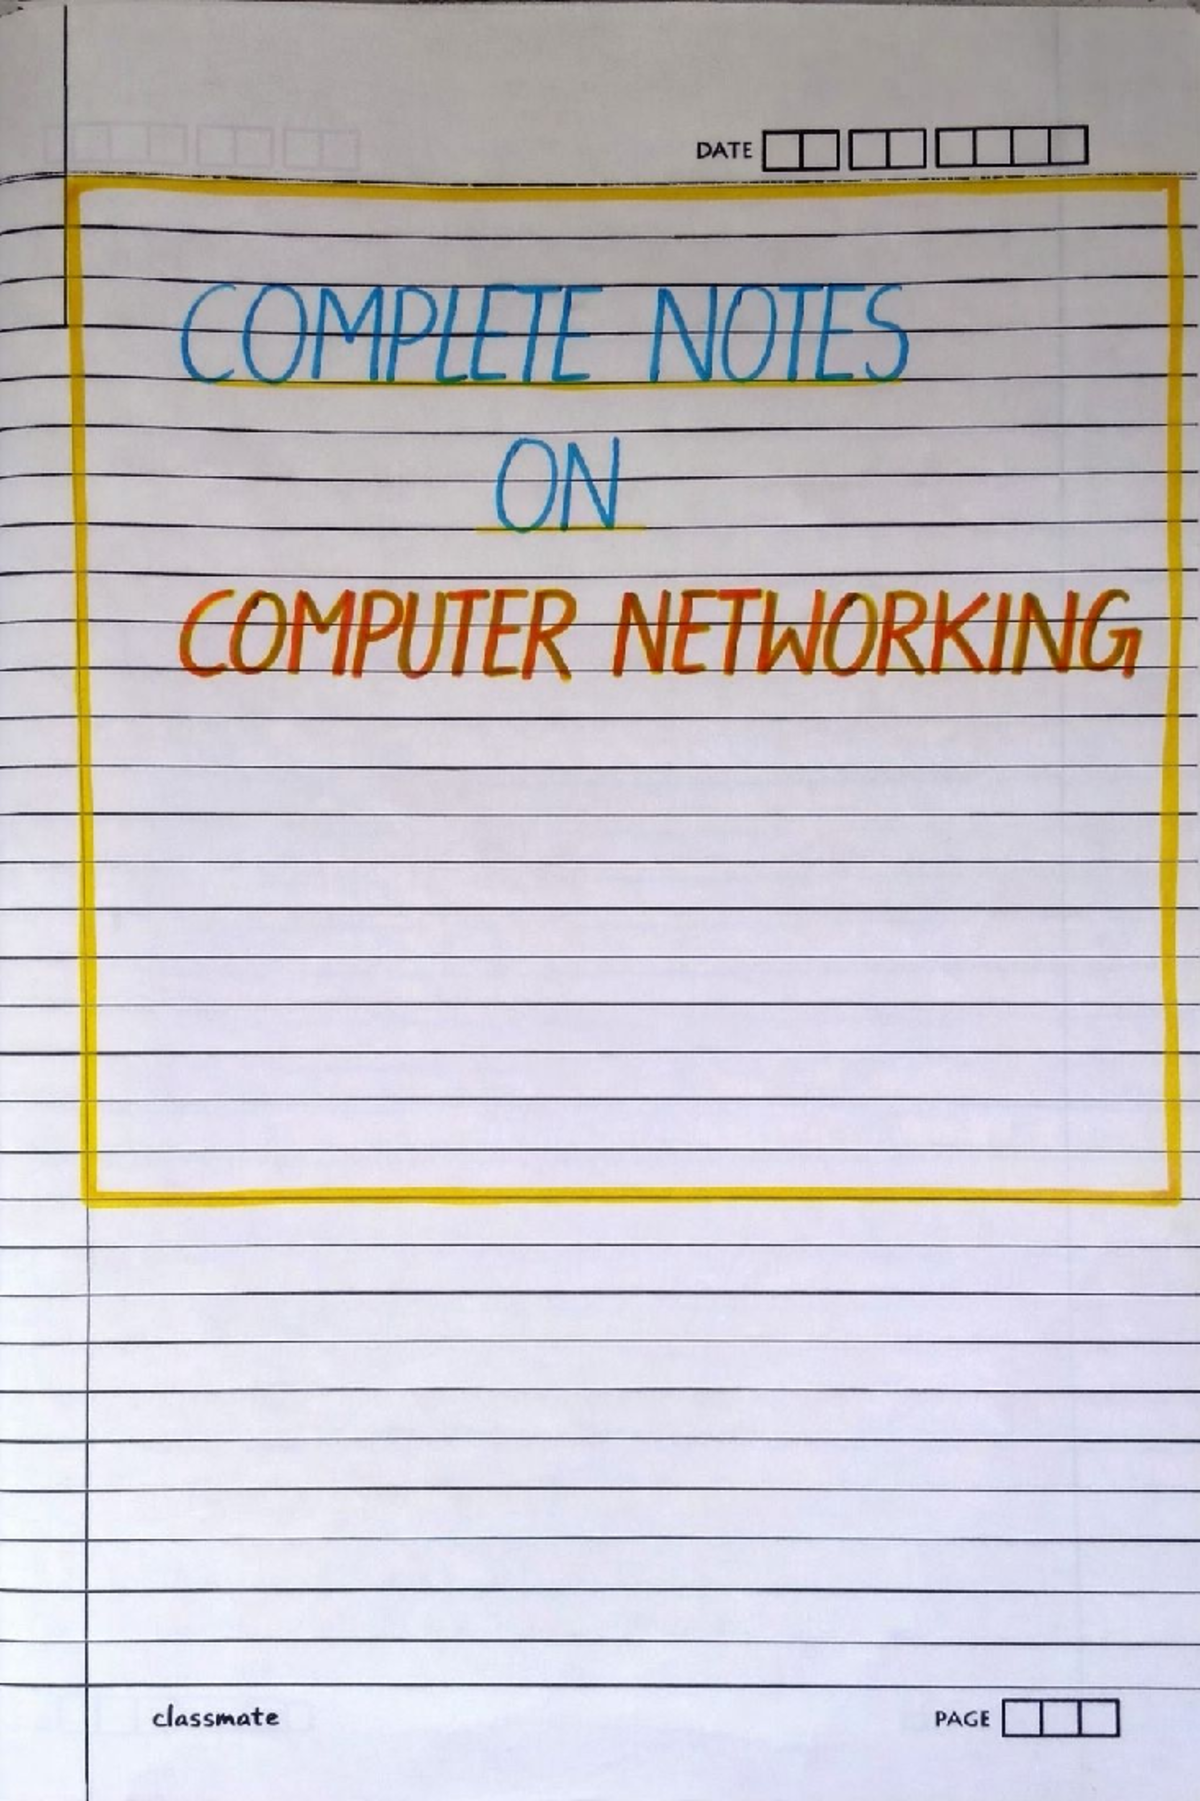 DATE
COMPLETE NOTES
ON
COMPUTER NETWORKING
classmate
PAGE